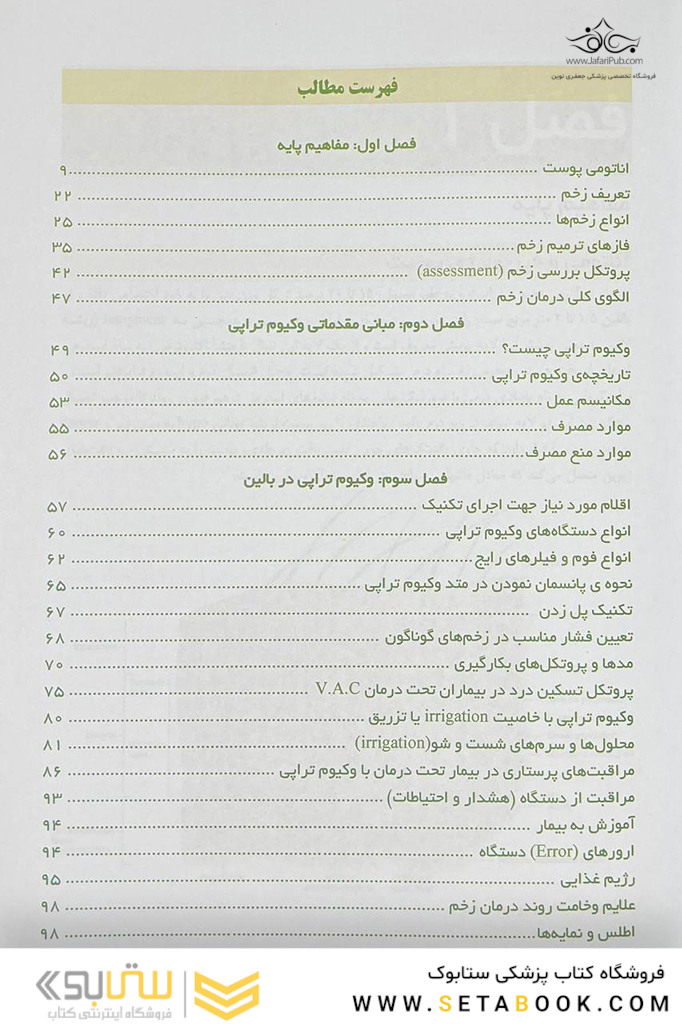 جعفری
www.JafariPub.com
فروشگاه تخصصی پزشکی جعفری نوین
فهرست مطالب
فصل اول: مفاهیم پایه
اناتومی پوست ........ ۹
تعریف زخم ........ ۲۲
انواع زخم‌ها ........ ۲۵
فازهای ترمیم زخم ........ ۳۵
پروتکل بررسی زخم (assessment) ........ ۴۲
الگوی کلی درمان زخم ........ ۴۷
فصل دوم: مبانی مقدماتی وکیوم تراپی
وکیوم تراپی چیست؟ ........ ۴۹
تاریخچه‌ی وکیوم تراپی ........ ۵۰
مکانیسم عمل ........ ۵۳
موارد مصرف ........ ۵۵
موارد منع مصرف ........ ۵۶
فصل سوم: وکیوم تراپی در بالین
اقلام مورد نیاز جهت اجرای تکنیک ........ ۵۷
انواع دستگاه‌های وکیوم تراپی ........ ۶۰
انواع فوم و فیلرهای رایج ........ ۶۲
نحوه ی پانسمان نمودن در متد وکیوم تراپی ........ ۶۵
تکنیک پل زدن ........ ۶۷
تعیین فشار مناسب در زخم‌های گوناگون ........ ۶۸
مدها و پروتکل‌های بکارگیری ........ ۷۰
پروتکل تسکین درد در بیماران تحت درمان V.A.C ........ ۷۵
وکیوم تراپی با خاصیت irrigation یا تزریق ........ ۸۰
محلول‌ها و سرم‌های شست و شو(irrigation) ........ ۸۱
مراقبت‌های پرستاری در بیمار تحت درمان با وکیوم تراپی ........ ۸۶
مراقبت از دستگاه (هشدار و احتیاطات) ........ ۹۳
آموزش به بیمار ........ ۹۴
ارورهای (Error) دستگاه ........ ۹۴
رژیم غذایی ........ ۹۵
علایم وخامت روند درمان زخم ........ ۹۸
اطلس و نمایه‌ها ........ ۹۸
فروشگاه کتاب پزشکی ستابوک
WWW.SETABOOK.COM
ستابوک
فروشگاه اینترنتی کتاب